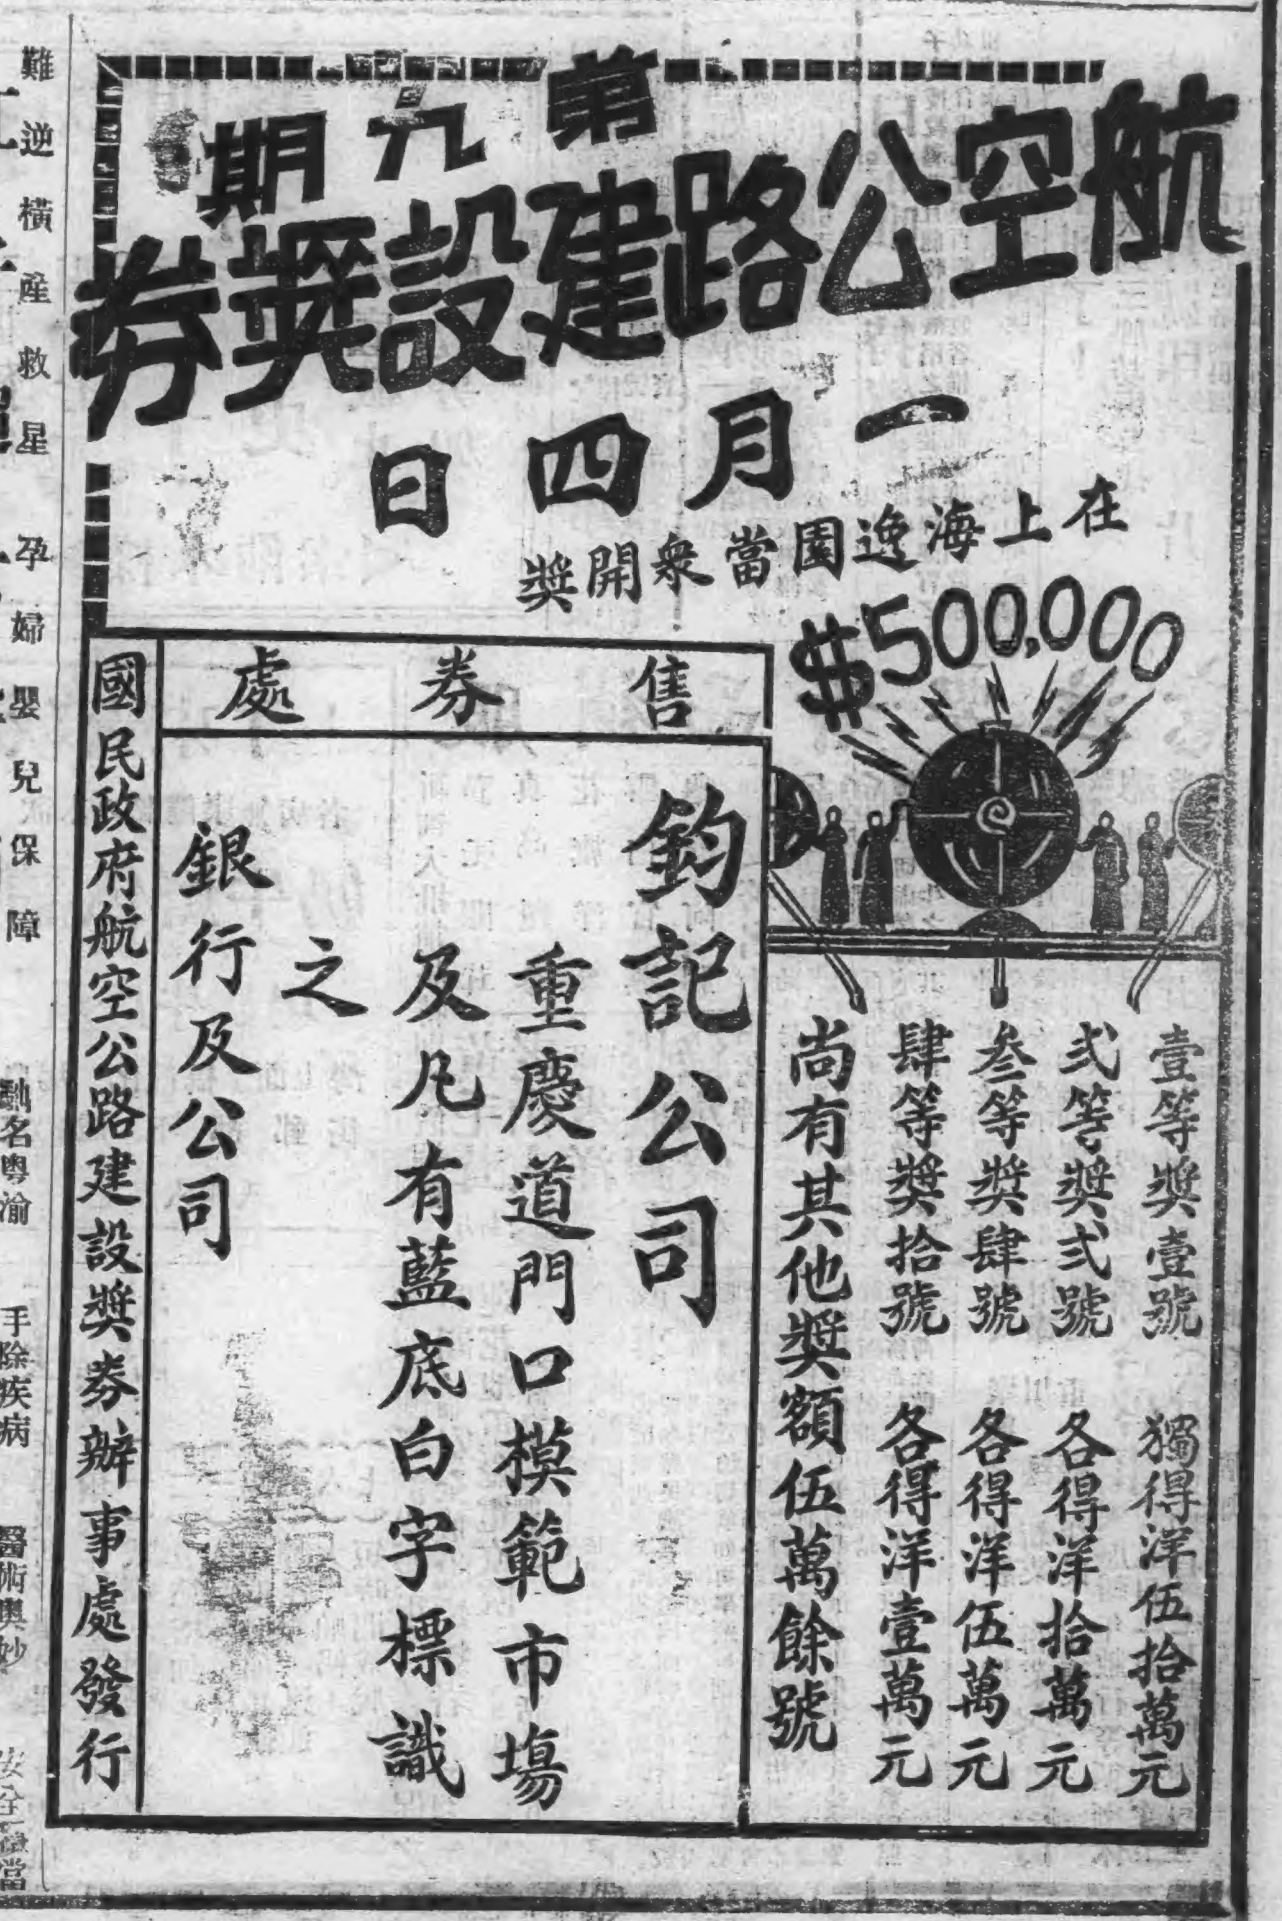 第九期
航空公路建設奬券
一月四日
在上海逸園當衆開奬
$500,000
壹等奬壹號 獨得洋伍拾萬元
弍等奬弍號 各得洋拾萬元
叁等奬肆號 各得洋伍萬元
肆等奬拾號 各得洋壹萬元
尚有其他奬額伍萬餘號
售券處
鈞記公司
重慶道門口模範市場
及凡有藍底白字標識
之
銀行及公司
國民政府航空公路建設奬券辦事處發行
難逆橫產救星 孕婦嬰兒保障
馳名粵渝 手除疾病 醫術奧妙